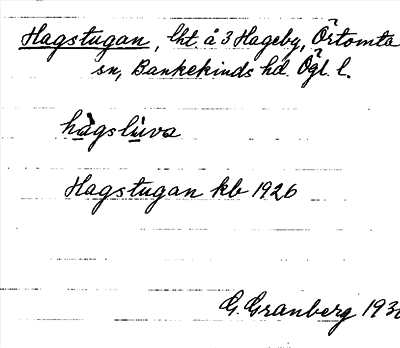 Hagstugan, lht. å 3 Hageby, Örtomta
sn, Bankekinds hd. Ögl. l.
hàgslùva
Hagstugan kb 1926
G. Granberg